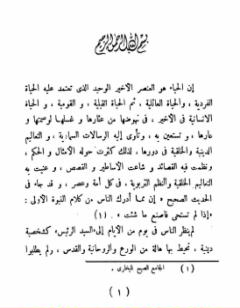 بسم الله الرحمن الرحيم
إن الحياء هو العنصر الأخير الوحيد الذى تعتمد عليه الحياة
الفردية ، والحياة العائلية ، ثم الحياة القبلية ، و القومية ، و الحياة
الانسانية فى الأخير ، فى نهوضها من عثارها و غسلها لوصمتها و
عارها ، و تستعين به ، وتأوى إليه الرسالات السماوية ، و التعاليم
الدينية والخلقية فى دورها ، ولذلك كثرت حوله الأمثال و الحكم ،
ونظمت فيه القصائد و شاعت الأساطير و القصص ، و عنيت به
التعاليم الخلقية والنظم التربوية ، فى كل أمة وعصر ، و قد جاء فى
الحديث الصحيح « إن مما أدرك الناس من كلام النبوة الأولى :
«إذا لم تستحى فاصنع ما شئت » . (١)
لم ينظر الناس فى يوم من الأيام إلى«السيد الرئيس» كشخصية
دينية ، تحيط بها هالة من الورع والروحانية والقدس ، ولم يطلبوا
(١) الجامع الصحيح للبخارى .
( ١ )